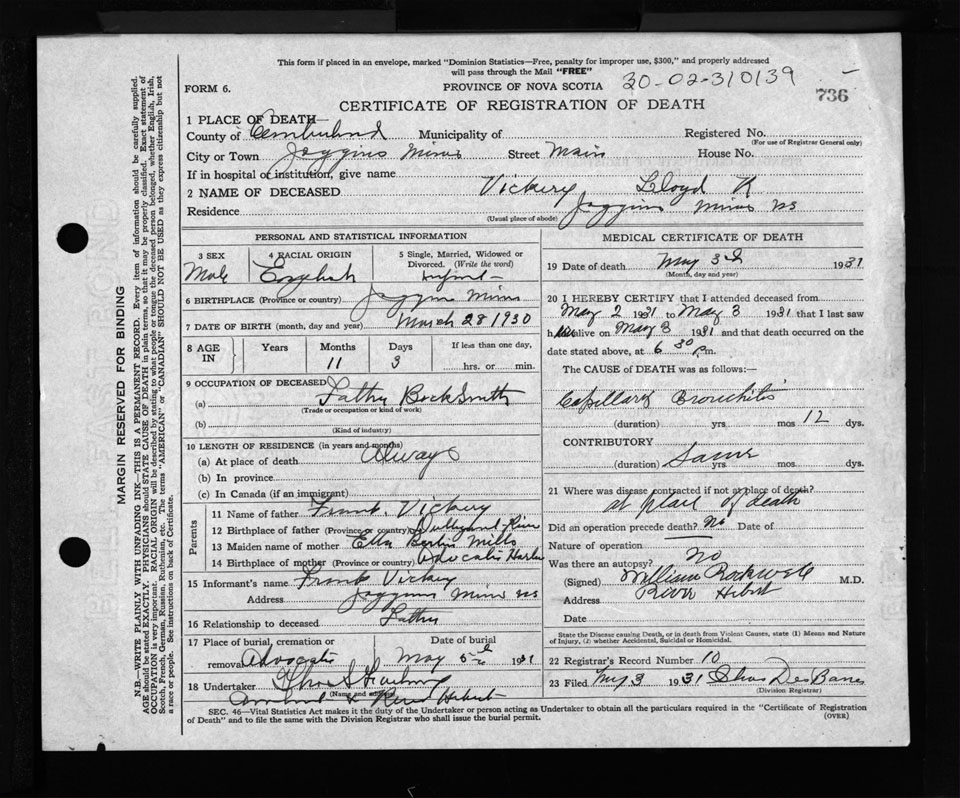 This form if placed in an envelope, marked "Dominion Statistics—Free, penalty for improper use, $300," and properly addressed
will pass through the Mail "FREE"
FORM 6.
PROVINCE OF NOVA SCOTIA 30-02-310139
736
CERTIFICATE OF REGISTRATION OF DEATH
1 PLACE OF DEATH—
County of Cumberland Municipality of Registered No.
(For use of Registrar General only)
City or Town Joggins Mines Street Main House No.
If in hospital or institution, give name
2 NAME OF DECEASED Vickery Lloyd K
Residence Joggins Mines NS
(Usual place of abode)
PERSONAL AND STATISTICAL INFORMATION
3 SEX 4 RACIAL ORIGIN 5 Single, Married, Widowed or
Divorced. (Write the word)
Male English Infant
6 BIRTHPLACE (Province or country) Joggins Mines
7 DATE OF BIRTH (month, day and year) March 28 1930
8 AGE IN Years Months Days If less than one day,
11 3 hrs. or min.
9 OCCUPATION OF DECEASED
(a) Father
(Trade or occupation or kind of work)
(b)
(Kind of industry)
10 LENGTH OF RESIDENCE (in years and months)
(a) At place of death Always
(b) In province
(c) In Canada (if an immigrant)
Parents
11 Name of father Frank Vickery
12 Birthplace of father (Province or country) River
13 Maiden name of mother Ella Mills
14 Birthplace of mother (Province or country) Advocate Harbor
15 Informant's name Frank Vickery
Address Joggins Mines NS
16 Relationship to deceased Father
17 Place of burial, cremation or Date of burial
removal Advocate May 5th 1931
18 Undertaker
(Name and address)
Amherst & River Hebert
MEDICAL CERTIFICATE OF DEATH
19 Date of death May 3d 1931
(Month, day and year)
20 I HEREBY CERTIFY that I attended deceased from
May 2 1931 to May 3 1931 that I last saw
h alive on May 3 1931 and that death occurred on the
date stated above, at 6 30 p.m.
The CAUSE of DEATH was as follows:—
Capillary Bronchitis
(duration) yrs mos 12 dys.
CONTRIBUTORY
(duration) Same yrs mos dys.
21 Where was disease contracted if not at place of death?
at place of death
Did an operation precede death? No Date of
Nature of operation
Was there an autopsy? No
(Signed) William Rockwell M.D.
Address River Hebert
Date
State the Disease causing Death, or in death from Violent Causes, state (1) Means and Nature
of Injury, (2) whether Accidental, Suicidal or Homicidal.
22 Registrar's Record Number 10
23 Filed May 3 1931 Chas Des Barres
(Division Registrar)
SEC. 46—Vital Statistics Act makes it the duty of the Undertaker or person acting as Undertaker to obtain all the particulars required in the "Certificate of Registration
of Death" and to file the same with the Division Registrar who shall issue the burial permit.
(OVER)
MARGIN RESERVED FOR BINDING
N.B.—WRITE PLAINLY WITH UNFADING INK—THIS IS A PERMANENT RECORD. Every item of information should be carefully supplied.
AGE should be stated EXACTLY. PHYSICIANS should STATE CAUSE OF DEATH in plain terms, so that it may be properly classified. Exact statement of
OCCUPATION is very important. RACIAL ORIGIN will be described by stating to what people or tongue the deceased person belonged, whether English, Irish,
Scotch, French, German, Russian, Ruthenian, etc. The terms "AMERICAN" or "CANADIAN" SHOULD NOT BE USED as they express citizenship but not
a race or people. See instructions on back of Certificate.